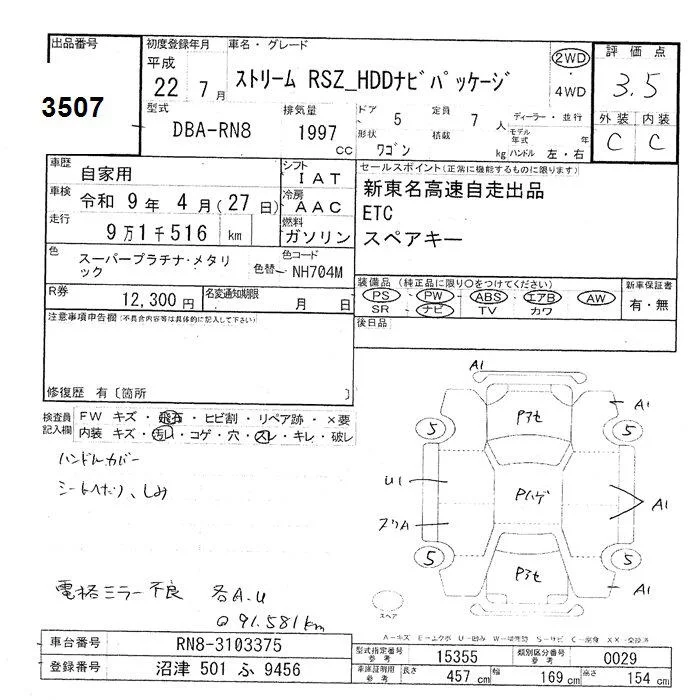 出品番号
3507
初度登録年月
平成
22 7月
車名・グレード
ストリーム RSZ_HDDナビパッケージ
2WD
4WD
評価点
3.5
外装 内装
C C
型式
DBA-RN8
排気量
1997 cc
ドア 5
定員 7 人
形状 ワゴン
積載 kg
ディーラー・並行
モデル年式 年
ハンドル 左・右
車歴 自家用
シフト IAT
車検 令和 9年 4月(27日)
冷房 AAC
走行 9万1千516 km
燃料 ガソリン
色 スーパープラチナ・メタリック
色替
色コード NH704M
R券 12,300円
名変通知期限 月 日
セールスポイント(正常に機能するものに限ります)
新東名高速自走出品
ETC
スペアキー
装備品 (純正品に限り○をつけてください)
PS PW ABS エアB AW
SR ナビ TV カワ
新車保証書
有・無
後日品
注意事項申告欄(不具合内容等は具体的に記入して下さい)
修復歴 有〔箇所 〕
検査員記入欄
FW キズ・飛石・ヒビ割・リペア跡・×要
内装 キズ・汚れ・コゲ・穴・スレ・キレ・破レ
ハンドルカバー
シートへたり、しみ
電格ミラー不良 各A.U
Q 91.581km
A1
A1
Pアセ
5
5
U1
Pハゲ
A1
スリA
5
5
Pアセ
A1
スペア
A-キズ E-エクボ U-凹み W-補修跡 S-サビ C-腐食 XX-交換済
車台番号 RN8-3103375
登録番号 沼津 501 ふ 9456
型式指定番号 参考 15355
類別区分番号 参考 0029
車庫証明用 参考
長さ 457 cm
幅 169 cm
高さ 154 cm